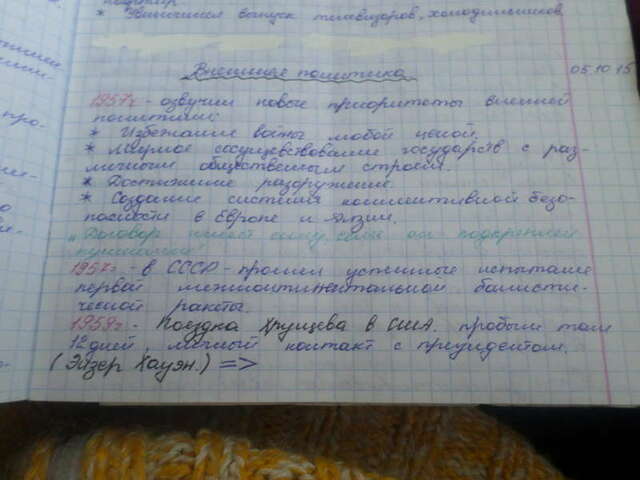 * Увеличился выпуск телевизоров, холодильников
Внешняя политика
05.10.15
1957г - озвучили новые приоритеты внешней
политики:
* Избежание войны любой ценой.
* Мирное сосуществование государств с раз-
личным общественным строем.
* Достижение разоружение
* Создание системы коллективной безо-
пасности в Европе и Азии.
"Договор имеет силу, если он подкреплён
1957г - в СССР - прошли успешные испытание
первой межконтинентальной балисти-
ческой ракеты.
1959г - Поездка Хрущева в США. пробыл там
12 дней, личный контакт с президентом.
(Эйзер Хауэн.) =>
про-